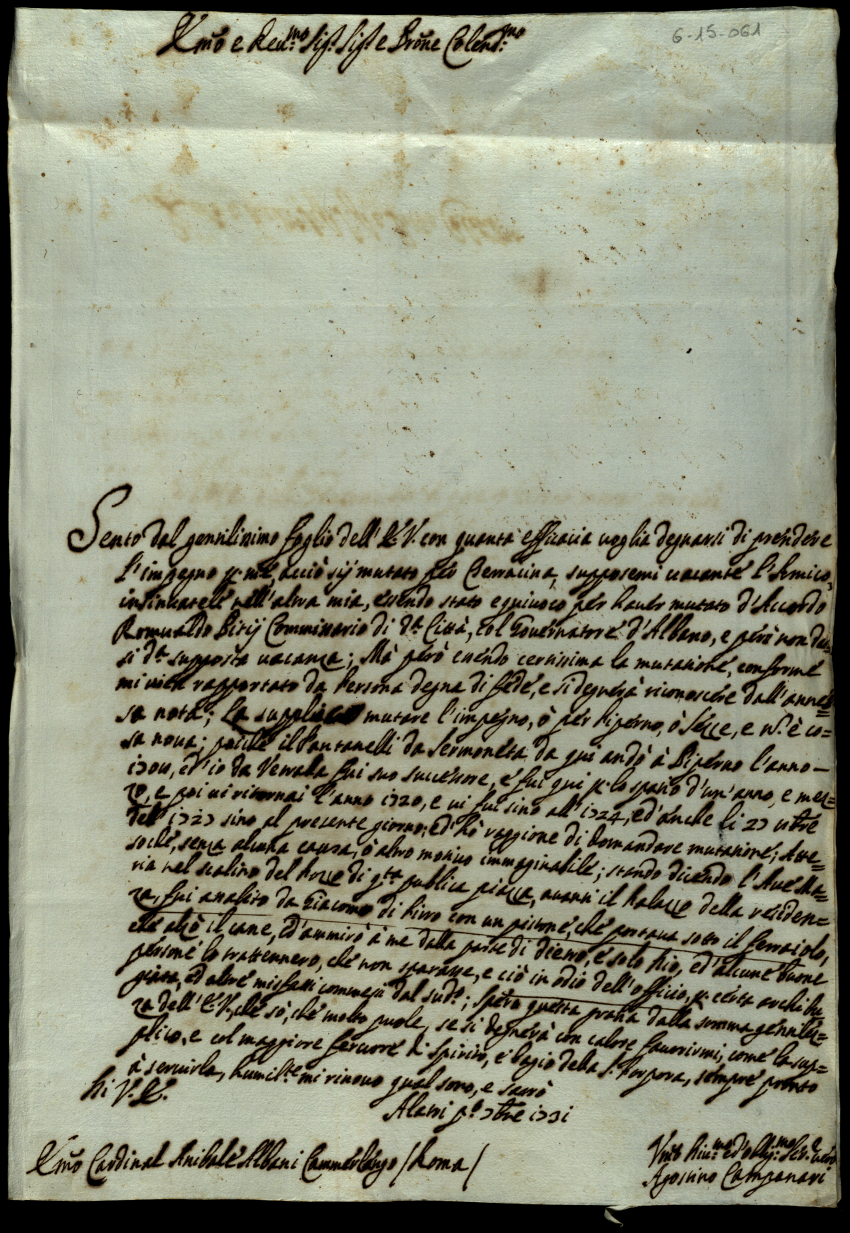 6-15-061
Em̃o e Reu.mo Sig.r Sig.r e Prõne Colend.mo
Sento dal gentilissimo foglio dell' E.V. con quanta efficacia uoglia degnarsi di prendere
l'impegno p. me, acciò sij mutato per Terracina, suppostemi uacante l'Amico,
insinuatele nell'altra mia, essendo stato equiuoco per hauer mutato d'Accordo
Romualdo Commissario di d.ta Città, col Gouernatore d'Albano, e però non
si d.ta supposta uacanza; Mà però essendo certissima la mutazione, conforme
mi uien rapportato da Persona degna di fede, e si degnerà riconoscere dall'annes=
sa nota; La supplico mutare l'impegno, ò per Piperno, ò Sezze, e n.n è co=
sa noua; poiche il Pantanelli da Sermoneta da qui andò à Piperno l'anno
ed' io da Veralla fui suo successore, e fui qui p. lo spazio d'un'anno, e mez=
zo, e poi ui ritornai l'anno 1720, e ui fui sino all' 1724, ed'anche li
del sino al presente giorno, ed hò raggione di domandare mutazione; Aue=
soche, senza alcuna causa, ò altro motiuo immaginabile; stando dicendo l'Aue Ma=
ria nel scalino del Pozzo di q.ta publica piazza, auanti il Palazzo della residen=
za, fui assalito da Giacomo di Pirro con un pistone, che portaua sotto il ferraiolo,
che alzò il cane, ed'ammirò à me dalla parte di dietro, e solo Iddio, ed'alcune buone
persone lo trattennero, che non sparasse, e ciò in odio dell'officio, p. certa archibu=
giata, ed altri misfatti commessi dal sud.o; Spero questa grazia dalla somma gentilez=
za dell' E.V., che sò, che molto puole, se si degnerà con calore fauorirmi, come la sup=
plico, e col maggiore feruore di Spirito, e bagio della S. Porpora, sempre pronto
à seruirla, humil.te mi rinouo qual sono, e sarò
Di V. E.
Alatri p.o 1731
Em̃o Cardinal Anibale Albani Camerlengo / Roma /
Vm̃o Diu.mo ed'obblig.mo Ser.e uero
Agostino Campanari